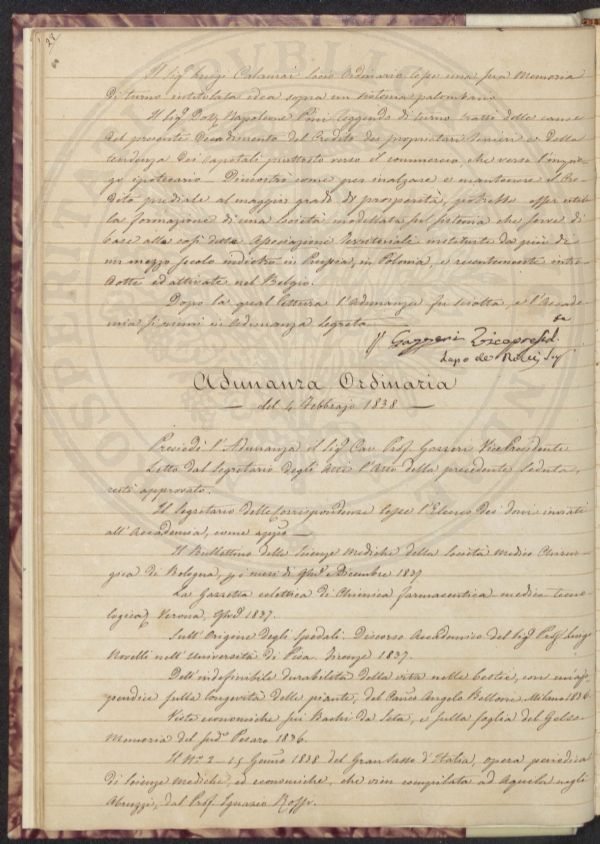 Il Sig.r Luigi Calamai Socio Ordinario lesse una sua Memoria
di turno intitolata idea sopra un sistema
Il Sig.r Dott. Napoleone Pini leggendo di turno trattò delle cause
del presente decadimento del Credito dei proprietari terrieri e della
tendenza dei Capitali piuttosto verso il commercio, che verso l'impie-
go ipotecario - Dimostrò come per inalzare e mantenere il Cre-
dito prediale al maggior grado di prosperità, potrebbe esser utile
la formazione di una Società modellata sul sistema che serve di
base alla così detta Associazione Territoriale instituita da più di
un mezzo secolo indietro in Prussia, in Polonia, e recentemente intro-
dotte ed attivate nel Belgio.
Dopo la qual lettura l'Adunanza fu sciolta, e l'Accade-
mia si riunì in Adunanza Segreta
Gazzeri Vicepresid.
Lapo de' Ricci Seg.
Adunanza Ordinaria
del 4 Febbrajo 1838
Presiedè l'Adunanza il Sig.r Cav. Prof. Gazzeri VicePresidente
Letto dal Segretario degli Atti l'Atto della precedente Seduta,
restò approvato.
Il Segretario delle Corrispondenze lesse l'Elenco dei doni inviati
all'Accademia, come appresso
Il Bullettino delle Scienze Mediche della Società Medico Chirur-
gica di Bologna, pei mesi di 9bre e Dicembre 1837
La Gazzetta eclettica di Chimica farmaceutica medica tecno-
logica, Verona, 1837.
Sull'Origine degli Spedali. Discorso Accademico del Sig. Prof. Luigi
Morelli nell'Università di Pisa. Firenze 1837.
Dell'indefinibile durabilità della vita nelle bestie, con un'ap-
pendice sulla longevità delle piante, del Angelo Bellani. Milano 1836
Viste economiche sui Bachi da Seta, e sulla foglia del Gelso
Memoria del Pesaro 1836.
Il N.o 2 - 15 Genn.o 1838 del Gran Sasso d'Italia, opera periodica
di Scienze mediche, ed economiche, che vien compilata ad Aquila negli
Abruzzi, dal Prof. Ignazio Rozzi.